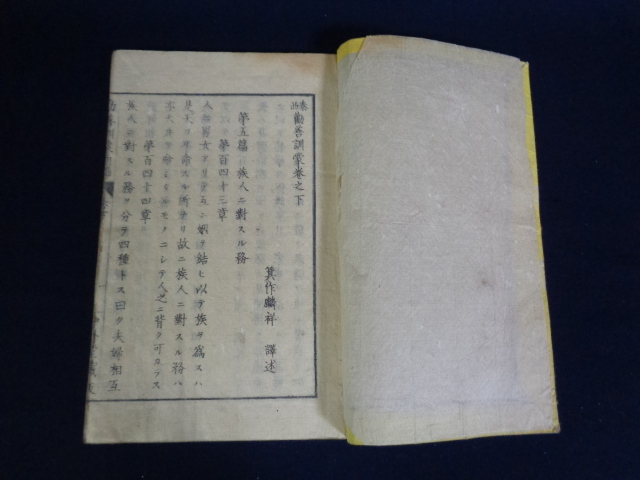 泰西勸善訓蒙巻之下
箕作麟祥 譯述
第五篇 族人ニ對スル務
第百四十三章
人男女アリ互ニ婚ヲ結ヒ以テ族ヲ為スハ
是天ノ命スル所ナリ故ニ族人ニ對スル務ハ
亦天ノ命スルモノニシテ人之ニ背ク可カラス
第百四十四章
族人ニ對スル務ヲ分テ四種トス曰ク夫婦相互